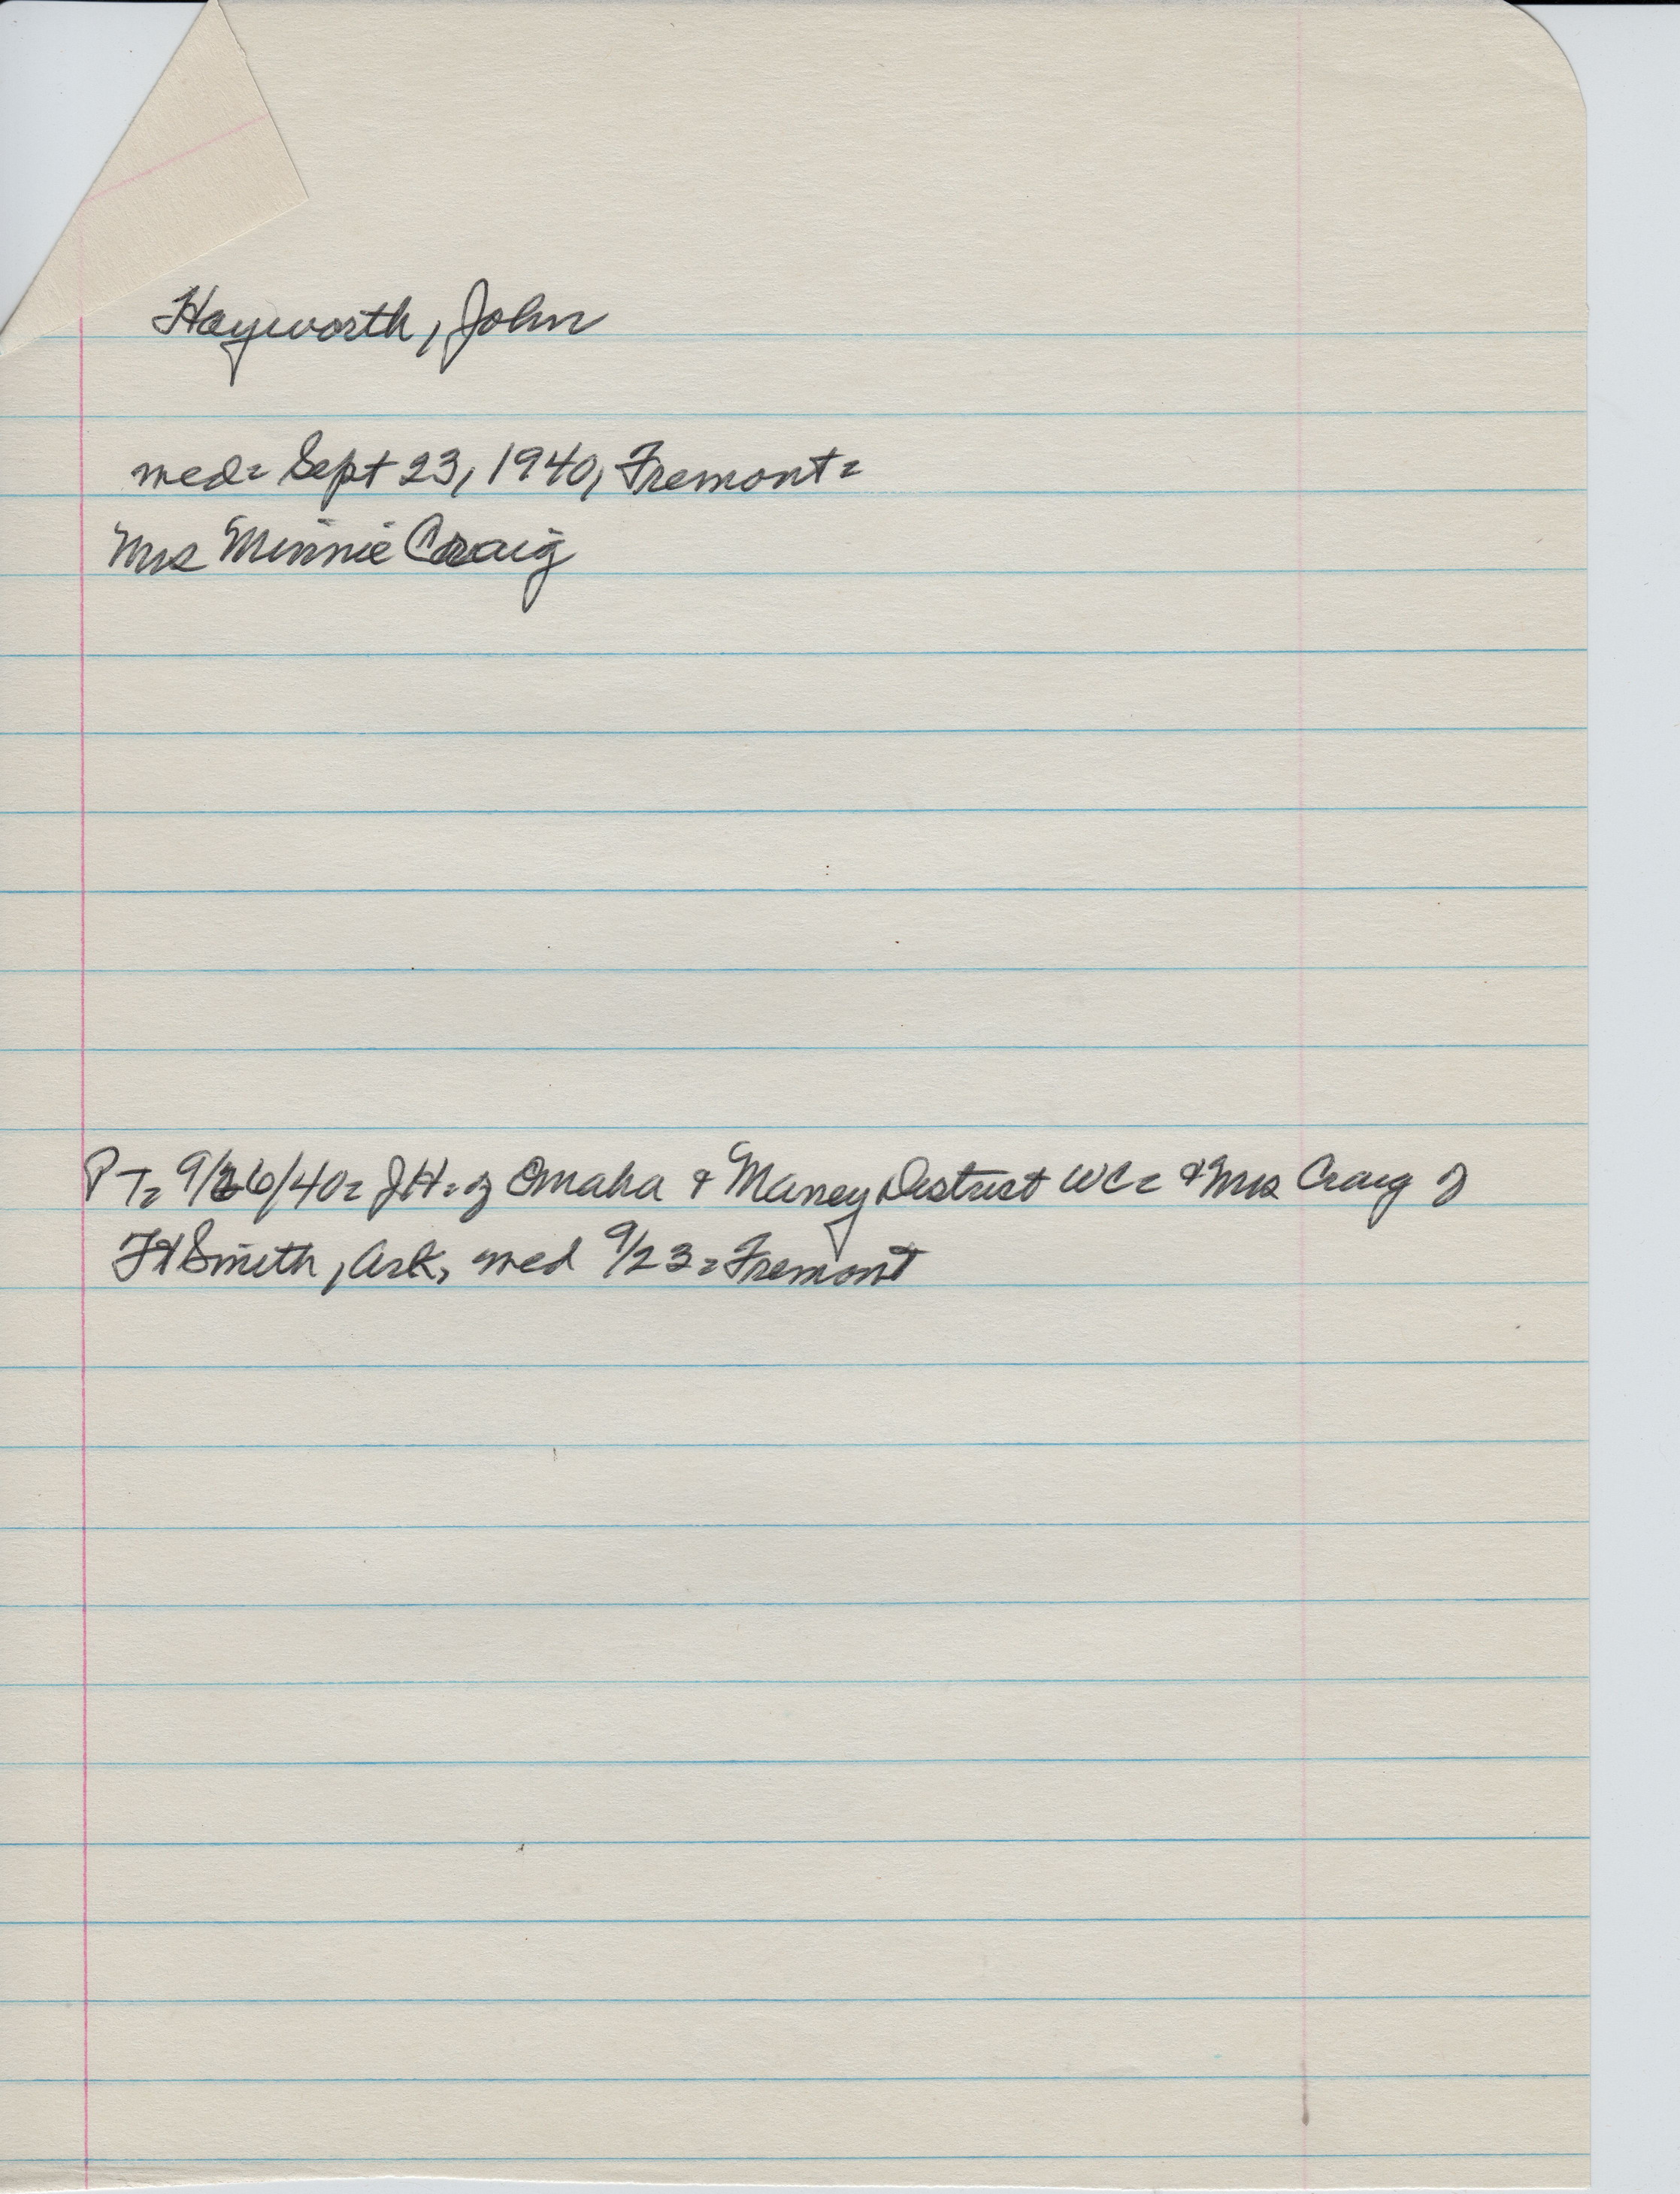 Hayworth, John
med= Sept 23, 1940, Fremont=
Mrs Minnie Craig
PT= 9/26/40= JH= of Omaha & Maney District WC= & Mrs Craig of
Ft Smith, Ark, med 9/23= Fremont